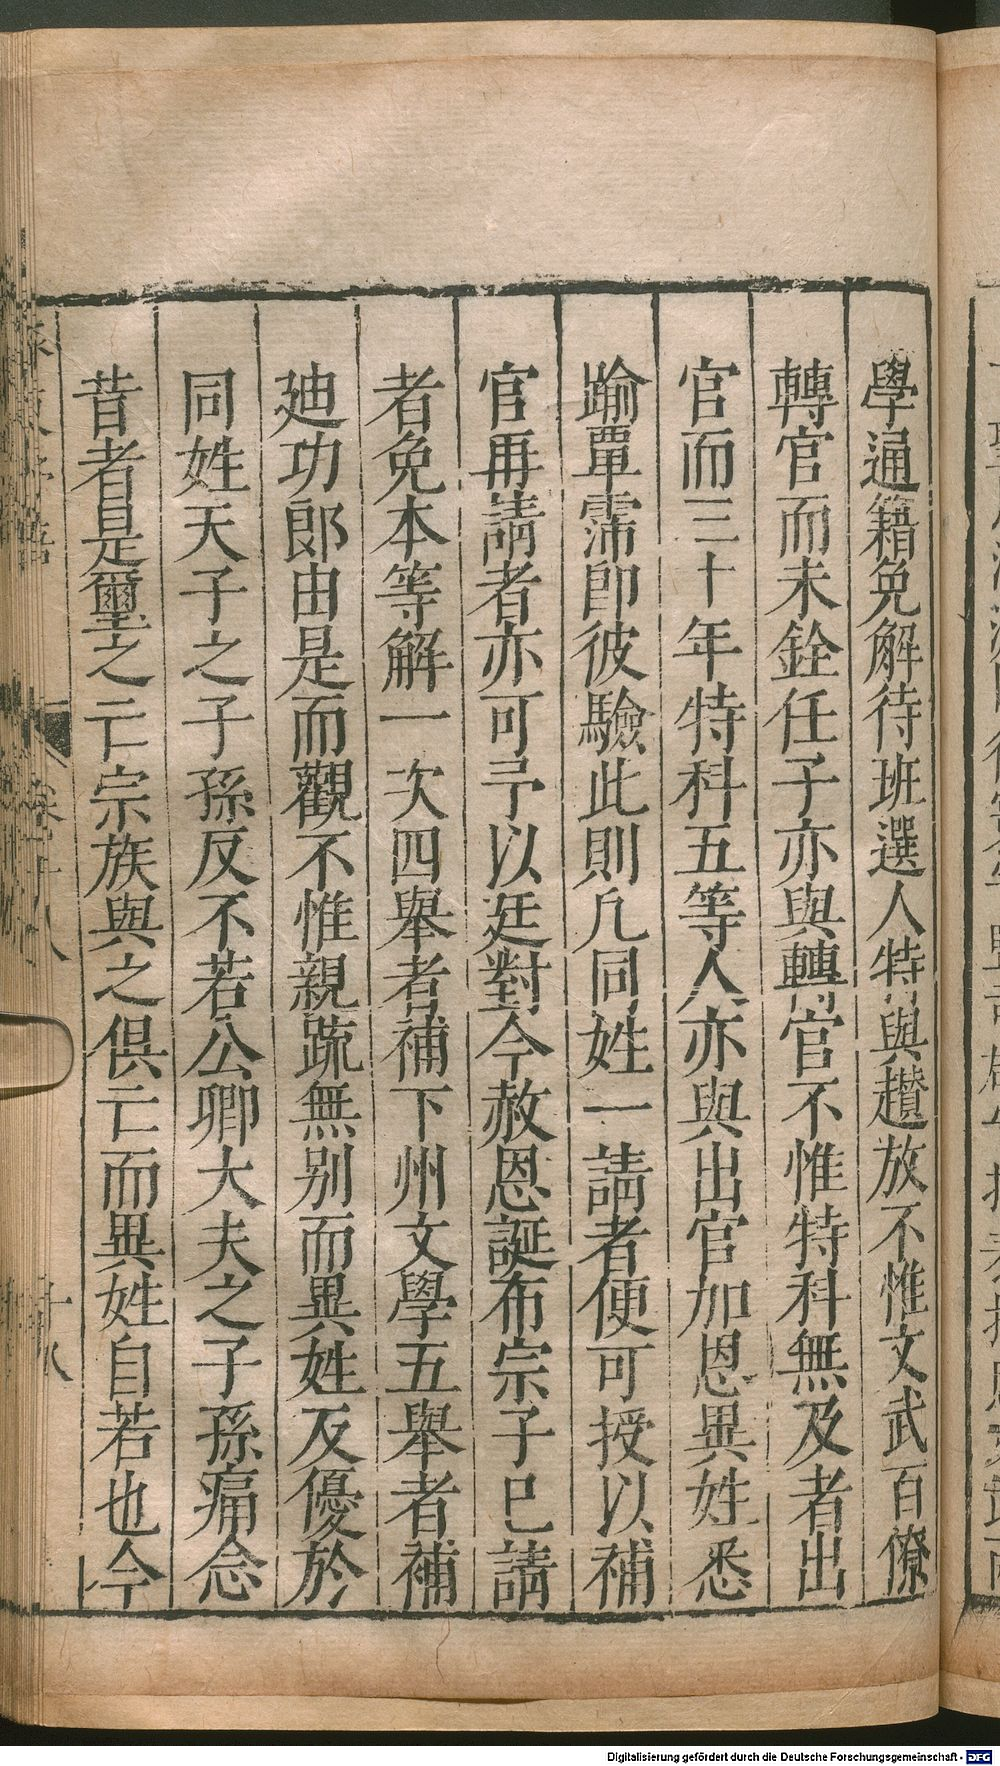 學通籍免解待班選人特與趲放不惟文武百僚
轉官而未銓任子亦與轉官不惟特科無及者出
官而三十年特科五等人亦與出官加恩異姓悉
踰覃霈即彼驗此則凢同姓一請者便可授以補
官再請者亦可予以廷對今赦恩誕布宗子已請
者免本等解一次四舉者補下州文學五舉者補
廸功郎由是而觀不惟親䟽無别而異姓反優於
同姓天子之子孫反不若公卿大夫之子孫痛念
昔者是璽之亡宗族與之俱亡而異姓自若也今
卷十八
十八
Digitalisierung gefördert durch die Deutsche Forschungsgemeinschaft - DFG